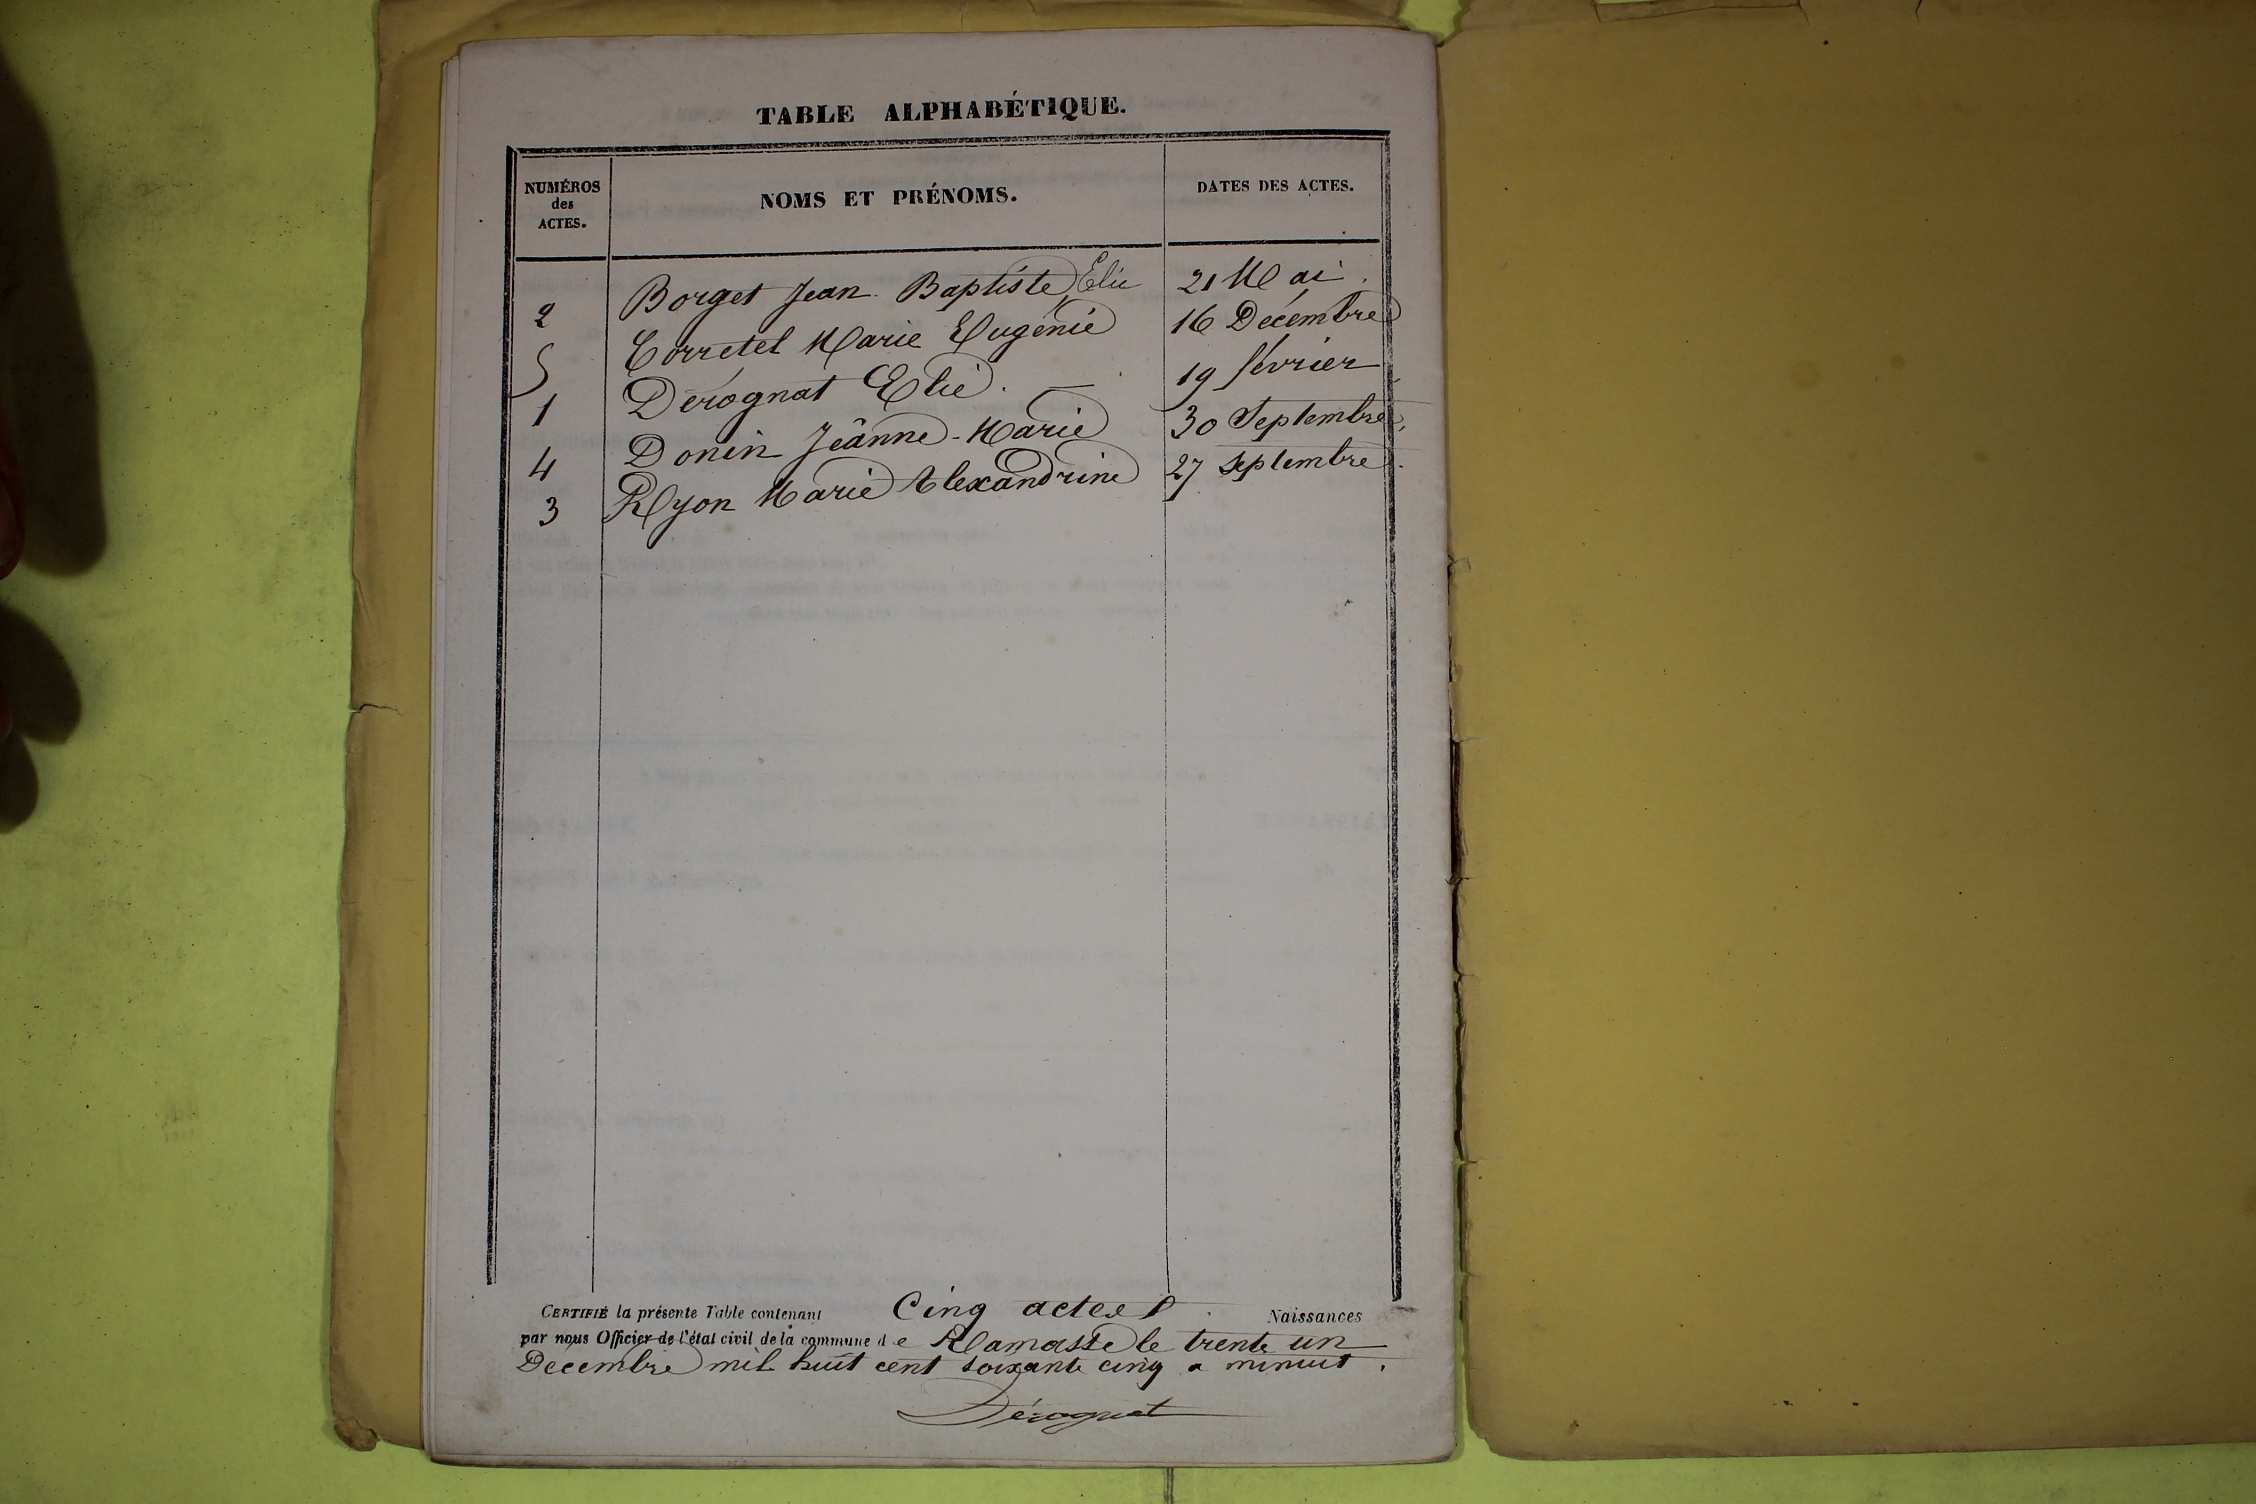 TABLE ALPHABÉTIQUE.
NUMÉROS des ACTES. NOMS ET PRÉNOMS. DATES DES ACTES.
2 Borget Jean Baptiste Elie 21 Mai.
5 Corretel Marie Eugénie 16 Décembre
1 Dérognat Elie. 19 février
4 Donin Jeânne-Marie 30 Septembre.
3 Ryon Marie Alexandrine 27 septembre.
CERTIFIÉ la présente Table contenant Cinq actes. Naissances
par nous Officier de l'état civil de la commune de Ramasse le trente un
Décembre mil huit cent soixante cinq a minuit.
Dérognat